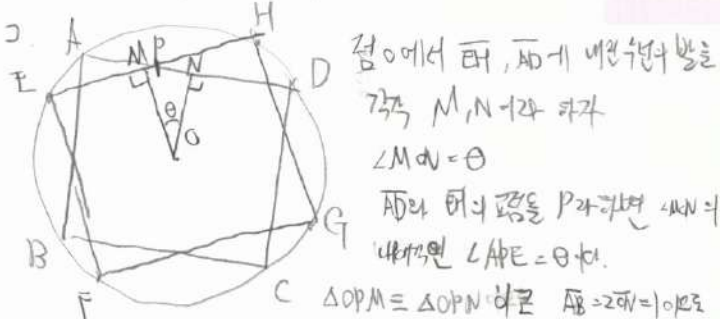 ㄱ.
A
M P N
H
E
D
θ
O
B
G
F
C
점 O에서 EH, AD에 내린 수선의 발을
각각 M, N이라 하자
∠MON = θ
AD와 EH의 교점을 P라 하면 ∠MON의
내대각인 ∠APE = θ이다.
△OPM ≡ △OPN 이므로 AB = 2ON = 1이므로